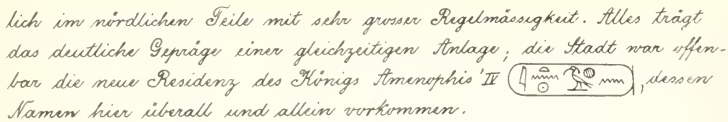 lich im nördlichen Teile mit sehr grosser Regelmässigkeit. Alles trägt
das deutliche Gepräge einer gleichzeitigen Anlage; die Stadt war offen-
bar die neue Residenz des Königs Amenophis' IV , dessen
Namen hier überall und allein vorkommen.